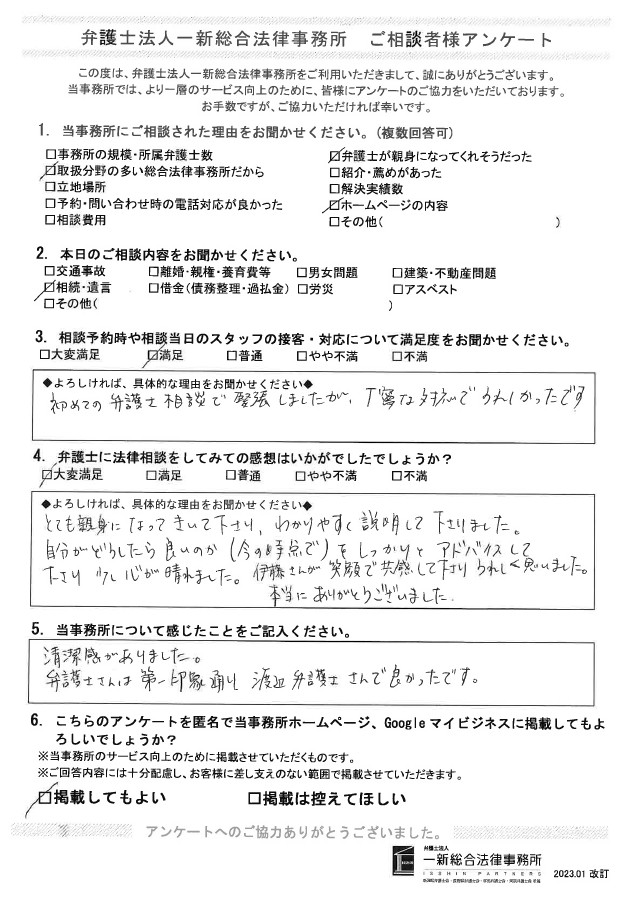 弁護士法人一新総合法律事務所　ご相談者様アンケート
この度は、弁護士法人一新総合法律事務所をご利用いただきまして、誠にありがとうございます。
当事務所では、より一層のサービス向上のために、皆様にアンケートのご協力をいただいております。
お手数ですが、ご協力いただければ幸いです。
1. 当事務所にご相談された理由をお聞かせください。（複数回答可）
□事務所の規模・所属弁護士数
☑取扱分野の多い総合法律事務所だから
□立地場所
□予約・問い合わせ時の電話対応が良かった
□相談費用
☑弁護士が親身になってくれそうだった
□紹介・薦めがあった
□解決実績数
☑ホームページの内容
□その他（　　　）
2. 本日のご相談内容をお聞かせください。
□交通事故　□離婚・親権・養育費等　□男女問題　□建築・不動産問題
☑相続・遺言　□借金（債務整理・過払金）　□労災　□アスベスト
□その他（　　　）
3. 相談予約時や相談当日のスタッフの接客・対応について満足度をお聞かせください。
□大変満足　☑満足　□普通　□やや不満　□不満
◆よろしければ、具体的な理由をお聞かせください◆
初めての弁護士相談で緊張しましたが、丁寧な対応でうれしかったです
4. 弁護士に法律相談をしてみての感想はいかがでしたでしょうか？
☑大変満足　□満足　□普通　□やや不満　□不満
◆よろしければ、具体的な理由をお聞かせください◆
とても親身になってきいて下さり、わかりやすく説明して下さりました。
自分がどうしたら良いのか（今の時点で）をしっかりとアドバイスして
下さり少し心が晴れました。伊藤さんが笑顔で共感して下さりうれしく思いました。
本当にありがとうございました.
5. 当事務所について感じたことをご記入ください。
清潔感がありました。
弁護士さんは第一印象通り渡辺弁護士さんで良かったです。
6. こちらのアンケートを匿名で当事務所ホームページ、Googleマイビジネスに掲載してもよ
ろしいでしょうか？
※当事務所のサービス向上のために掲載させていただくものです。
※ご回答内容には十分配慮し、お客様に差し支えのない範囲で掲載させていただきます。
☑掲載してもよい　□掲載は控えてほしい
アンケートへのご協力ありがとうございました。
弁護士法人
一新総合法律事務所
ISSHIN PARTNERS
2023.01 改訂